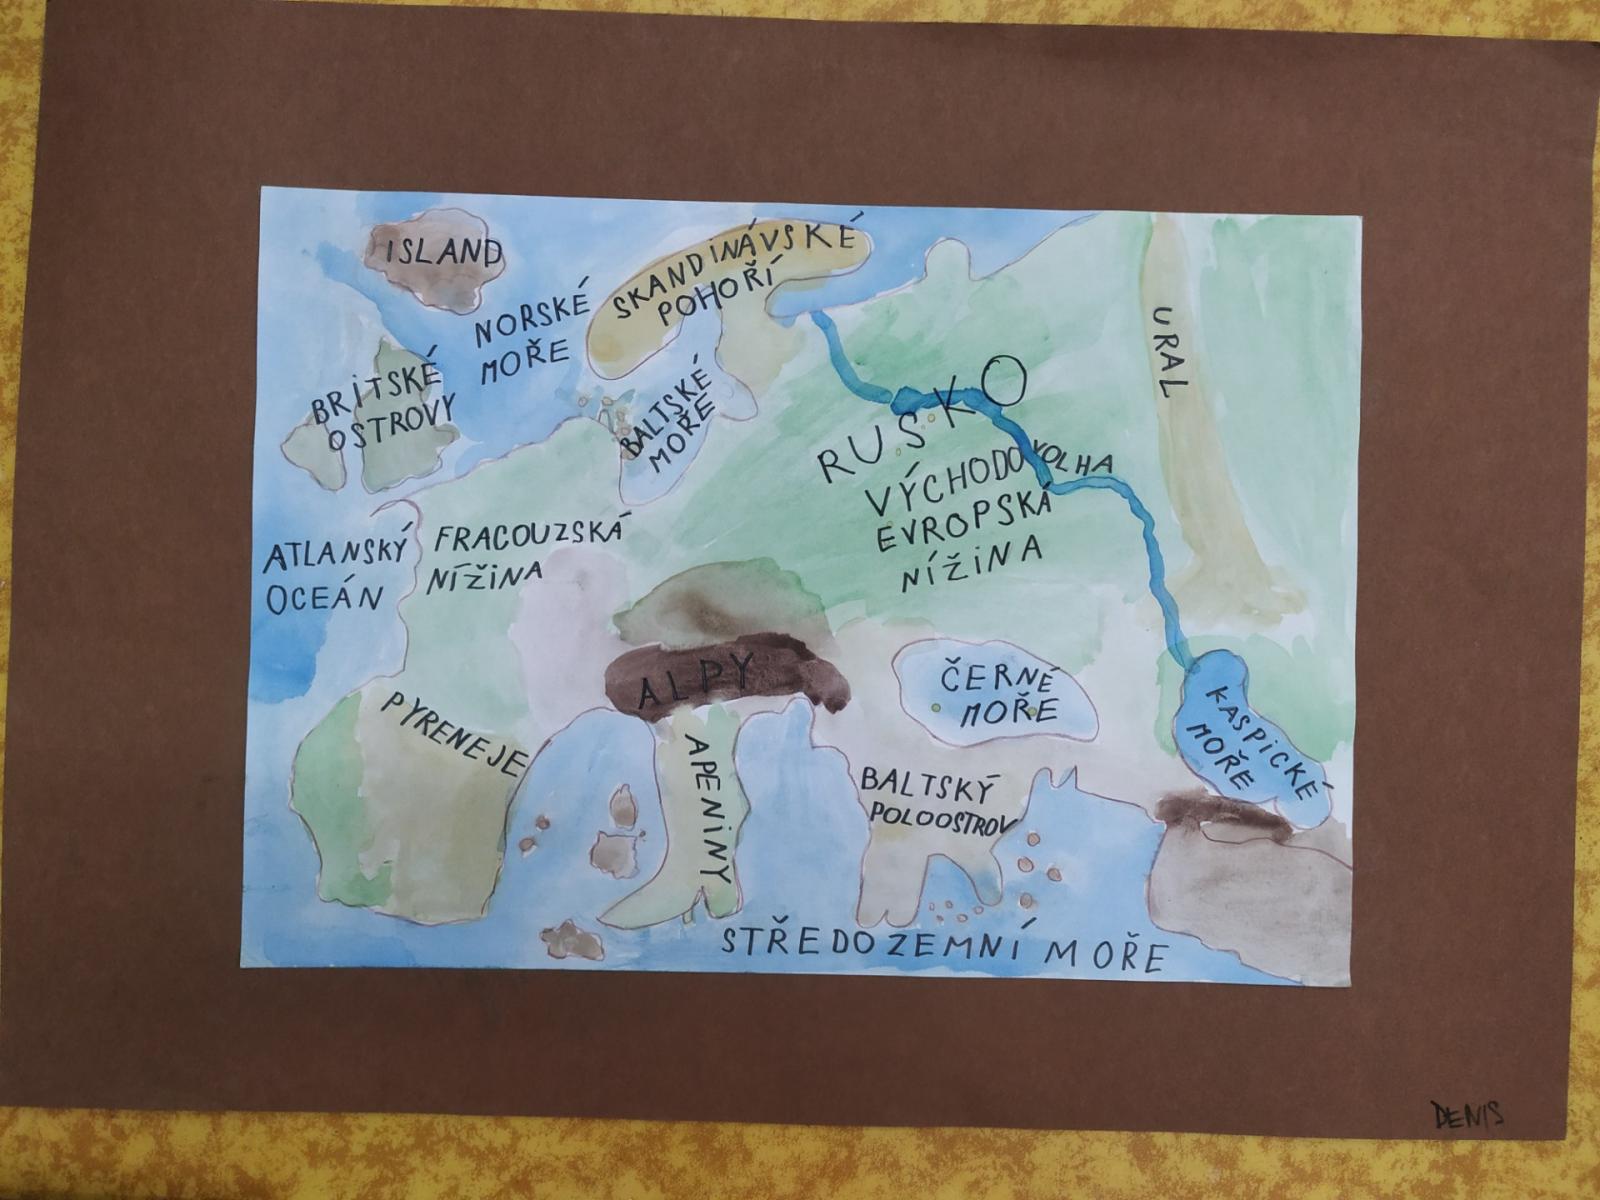 ISLAND
NORSKÉ
MOŘE
SKANDINÁVSKÉ
POHOŘÍ
BRITSKÉ
OSTROVY
BALTSKÉ
MOŘE
URAL
RUSKO
VOLHA
VÝCHODO
EVROPSKÁ
NÍŽINA
ATLANSKÝ
OCEÁN
FRACOUZSKÁ
NÍŽINA
ALPY
PYRENEJE
APENINY
ČERNÉ
MOŘE
KASPICKÉ
MOŘE
BALTSKÝ
POLOOSTROV
STŘEDOZEMNÍ MOŘE
DENIS